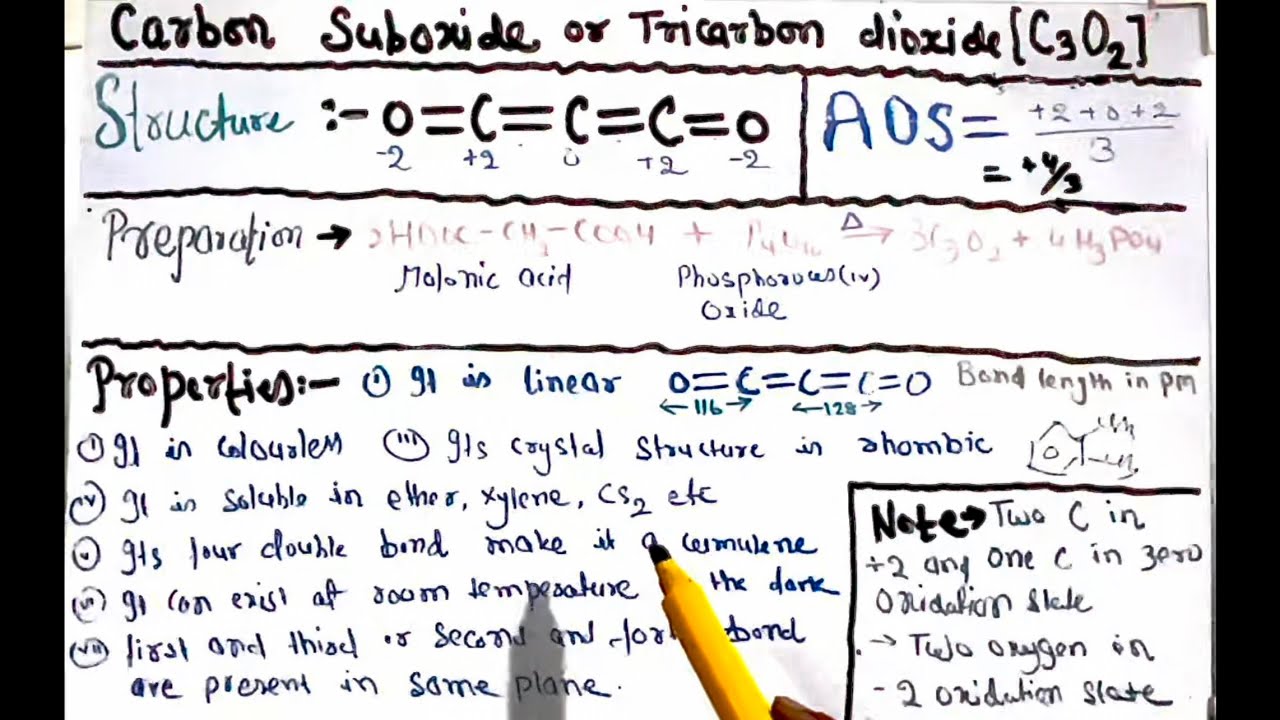 Carbon Suboxide or Tricarbon dioxide [C3O2]
Structure :- O=C=C=C=O
-2 +2 0 +2 -2
AOS = +2+0+2/3
= +4/3
Preparation → 2HOOC-CH2-COOH + P4O10 Δ→ 3C3O2 + 4H3PO4
Malonic acid Phosphorous(iv)
Oxide
Properties:- (i) It is linear O=C=C=C=O Bond length in pm
116 128
(i) It is colourless (iii) Its crystal structure is rhombic
(iv) It is soluble in ether, xylene, CS2 etc
(v) Its four double bond make it a cumulene
(vi) It can exist at room temperature the dark
(vii) first and third or second and bond
are present in same plane.
Note → Two C in
+2 and one C in zero
oxidation state
→ Two oxygen in
-2 oxidation state